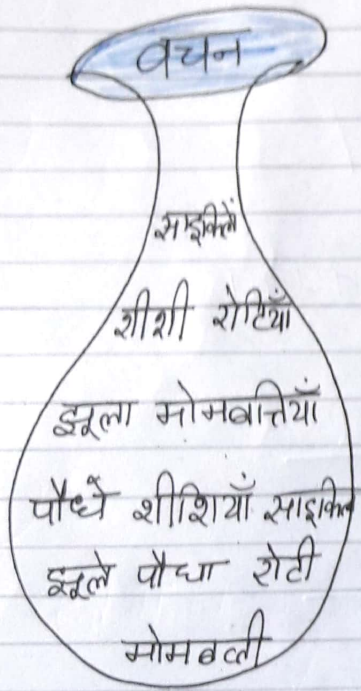 वचन
साइकिलें
शीशी रोटियाँ
झूला मोमबत्तियाँ
पौधें शीशियाँ साइकिल
झूले पौधा रोटी
मोमबत्ती